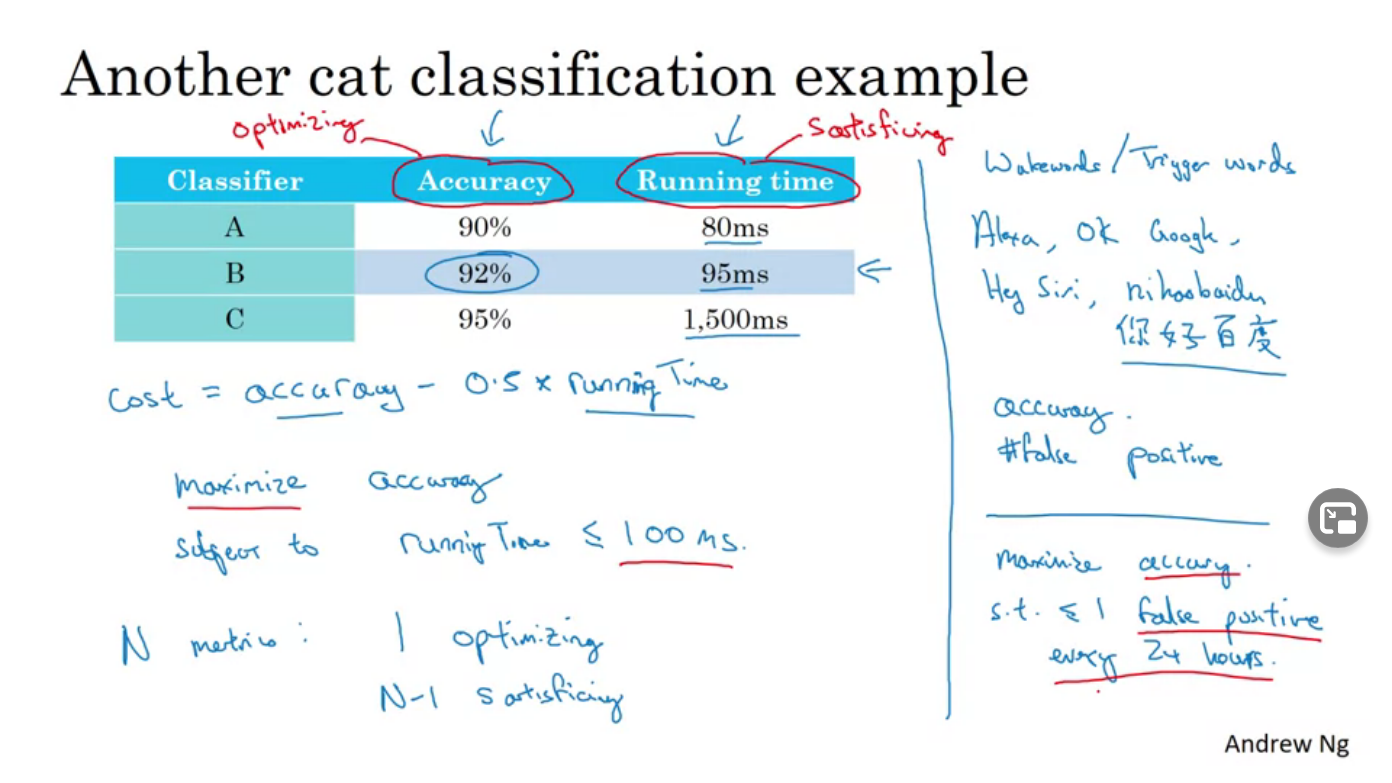 Another cat classification example
optimizing
satisficing
Classifier Accuracy Running time
A 90% 80ms
B 92% 95ms
C 95% 1,500ms
cost = accuracy - 0.5 x running Time
maximize accuracy
subject to running Time ≤ 100 ms.
N metrics: 1 optimizing
N-1 satisficing
Wakewords / Trigger words
Alexa, OK Google,
Hey Siri, nihaobaidu
你好百度
accuracy.
#false positive
maximize accuracy.
s.t. ≤ 1 false positive
every 24 hours.
Andrew Ng